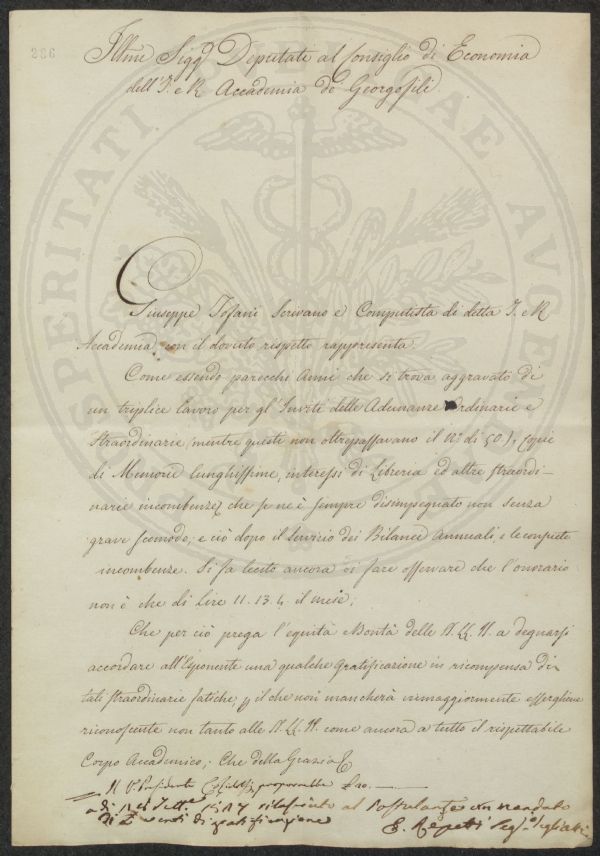 286
Illmi Sigg.ri Deputati al Consiglio di Economia
dell'I. e R. Accademia de Georgofili
Giuseppe Tofani Scrivano e Computista di detta I. e R.
Accademia con il dovuto rispetto rappresenta.
Come essendo parecchi Anni che si trova aggravato di
un triplice lavoro per gl'Inviti delle Adunanze Ordinarie e
Straordinarie (mentre questi non oltrepassavano il N.o di 50), Copie
di Memorie lunghissime, interessi di Libreria ed altre straordi-
narie incombenze, che se ne è sempre disimpegnato non senza
grave scomodo; e ciò dopo il servizio dei Bilanci Annuali, e le consuete
incombenze. Si fa lecito ancora di fare osservare che l'onorario
non è che di Lire 11. 13. 4. il mese;
Che per ciò prega l'equità e bontà delle LL. a degnarsi
accordare all'Esponente una qualche gratificazione in ricompensa di
tali straordinarie fatiche, il che non mancherà vie maggiormente essergliene
riconoscente non tanto alle LL. come ancora a tutto il rispettabile
Corpo Accademico; Che della Grazia
Il V. Presidente proporrebbe
a dì rilasciato al Postulante un mandato
di venti di gratificazione E. Repetti Seg.
PROSPERITATI PUBLICAE AUGENDAE